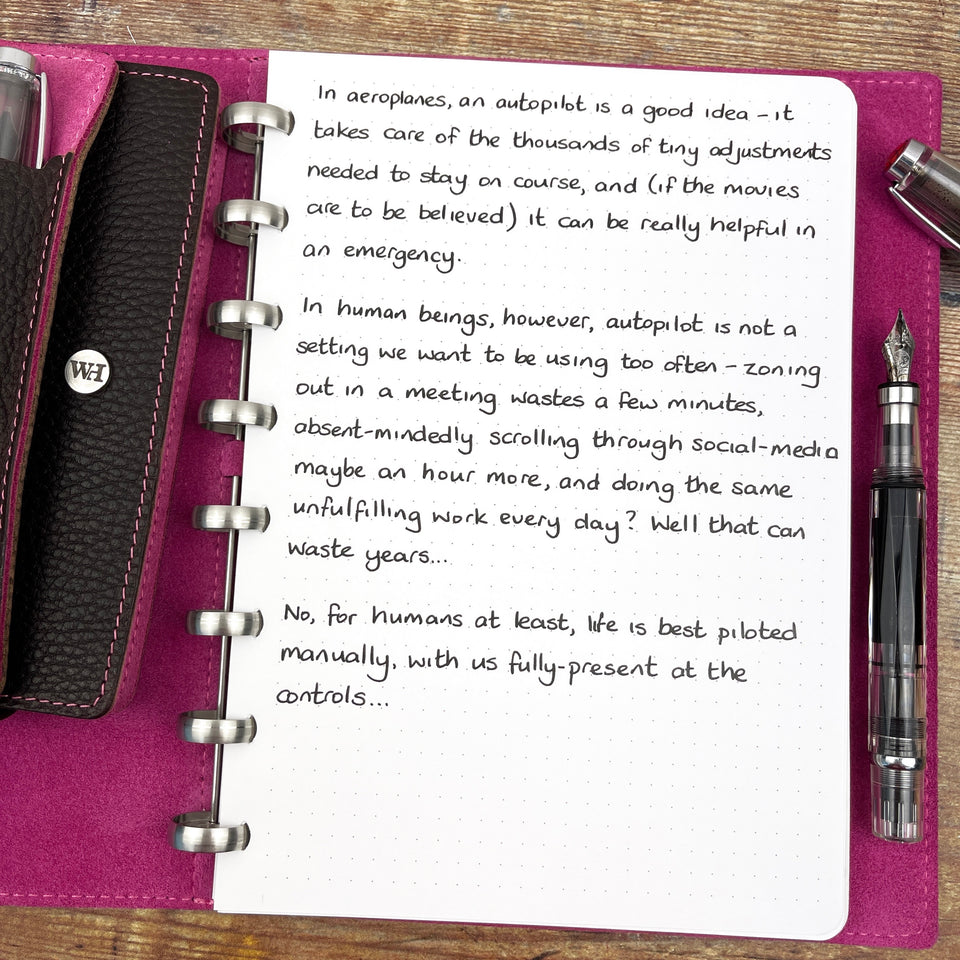 In aeroplanes, an autopilot is a good idea - it
takes care of the thousands of tiny adjustments
needed to stay on course, and (if the movies
are to be believed) it can be really helpful in
an emergency.
In human beings, however, autopilot is not a
setting we want to be using too often - zoning
out in a meeting wastes a few minutes,
absent-mindedly scrolling through social-media
maybe an hour more, and doing the same
unfulfilling work every day? Well that can
waste years...
No, for humans at least, life is best piloted
manually, with us fully-present at the
controls...
WH